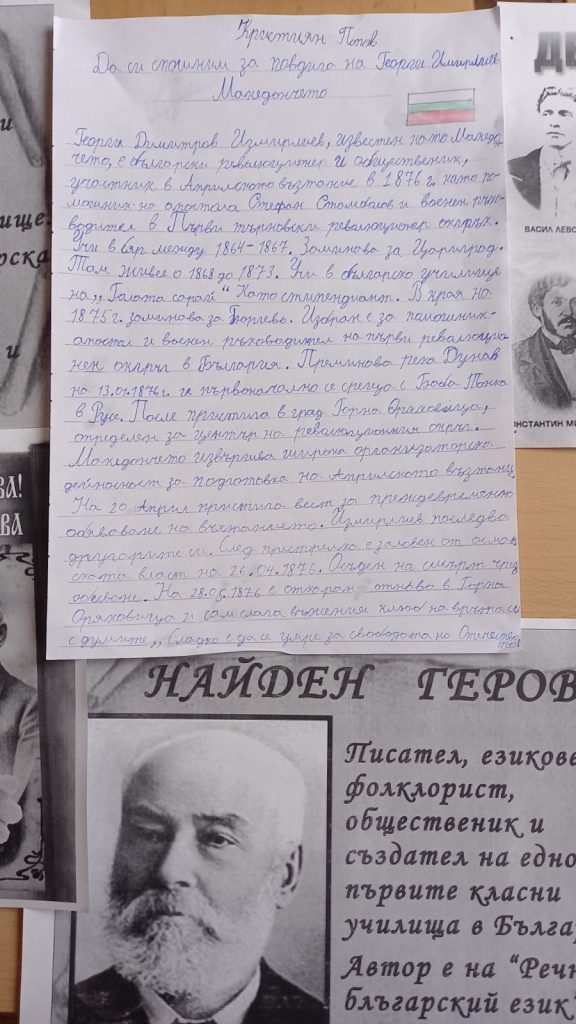 Кристиян Попов
Да си спомним за подвига на Георги Измирлиев
Македончето
Георги Димитров Измирлиев, известен като Македон-
чето, е български революционер и общественик,
участник в Априлското въстание в 1876 г. като по-
мощник на апостола Стефан Стамболов и военен ръко-
водител в Първи търновски революционен окръг.
Учи в  между 1864-1867. Заминава за Цариград.
Там живее о 1868 до 1873. Учи в българско училище
на „Галата сарай“ като стипендиант. В края на
1875 г. заминава за Гюргево. Избран е за помощник-
апостол и военен ръководител на първи революцио
нен окръг в България. Преминава река Дунав
на 13.01.1876 г. и първоначално се среща с Баба Тонка
в Русе. После пристига в град Горна Оряховица,
определен за център на революционния окръг.
Македончето извършва широка организаторска
дейност за подготовка на Априлското въстание.
На 20 Април пристига вест за преждевременно
обявяване на въстанието. Измирлиев последва
другарите си. След престрелка е заловен от осман
ската власт на 26.04.1876. Осъден на смърт чрез
обесване. На 28.05.1876 е откаран в Горна
Оряховица и сам слага въжения клюп на врата си
с думите „Сладко е да се умре за свободата на Отечество
то“
ДЕ
ВАСИЛ ЛЕВС
КОНСТАНТИН МИ
и
ище.
рска
и
ВА!
ВА
НАЙДЕН ГЕРОВ
Писател, езикове
фолклорист,
общественик и
създател на едно
първите класни
училища в Българ
Автор е на “Речн
блъгарский език”